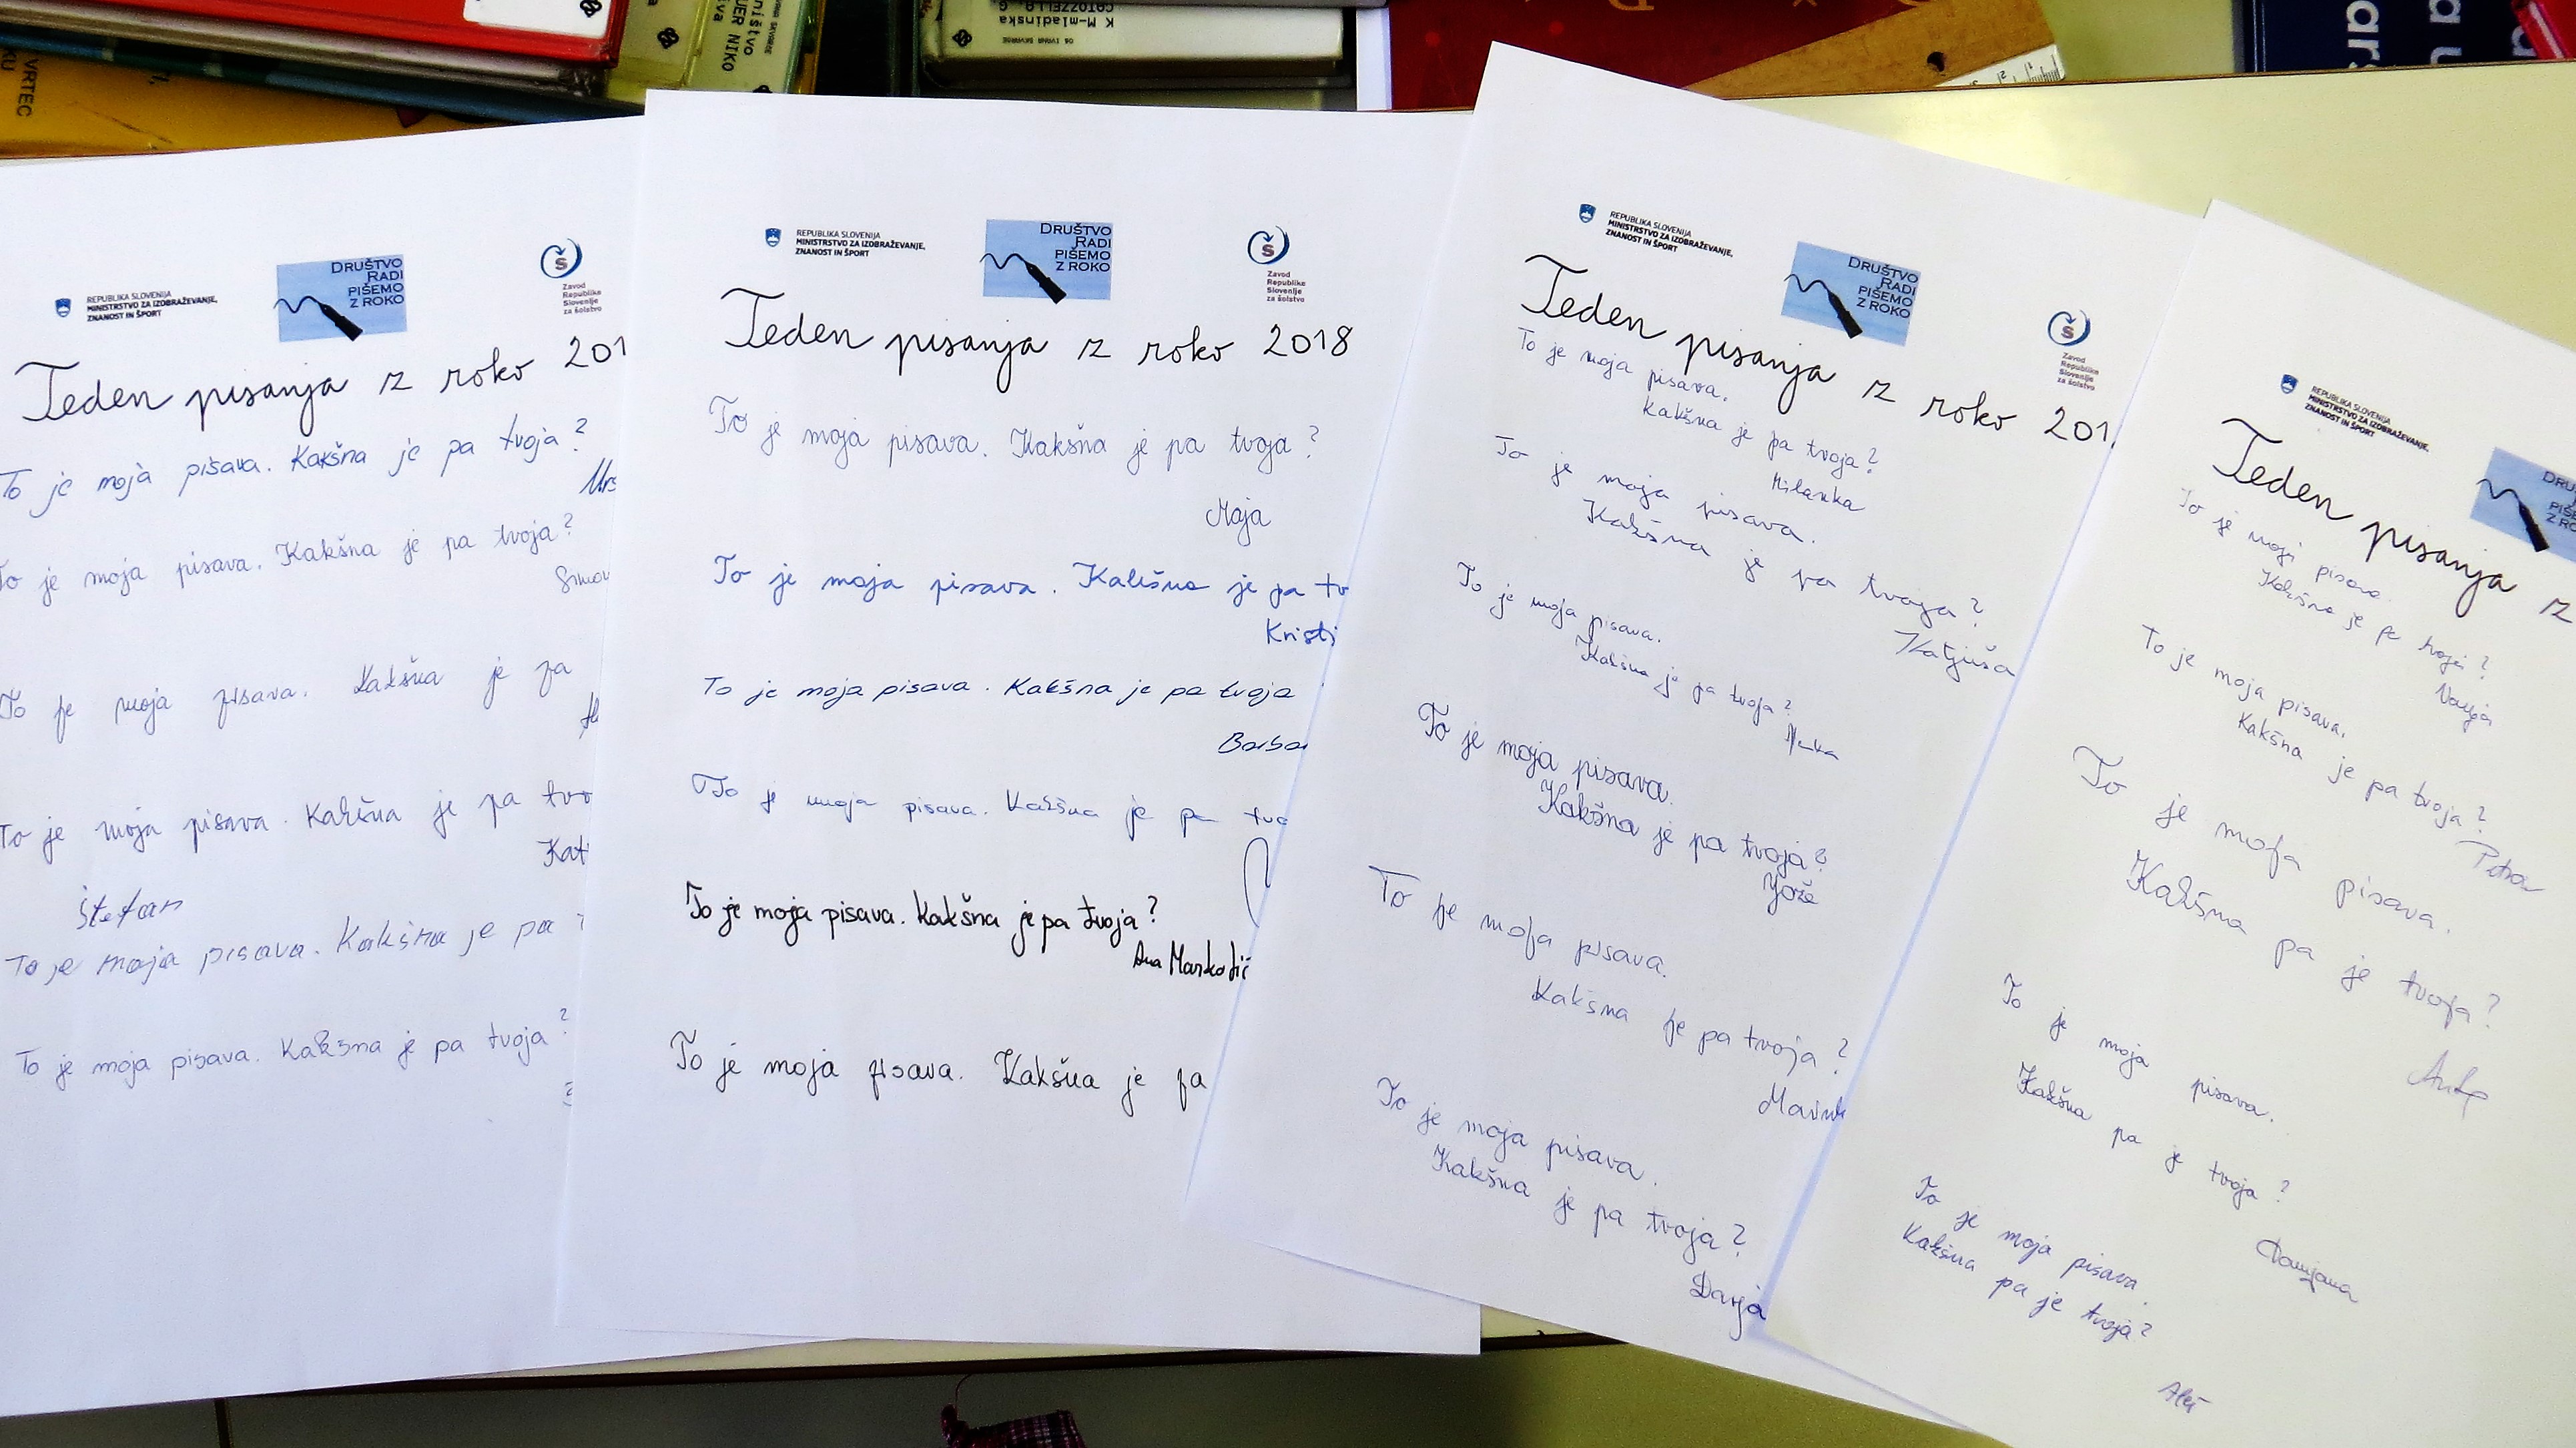 VRTEC
NIKO
K M-mladinska
CATOZZELLA, G.
REPUBLIKA SLOVENIJA
MINISTRSTVO ZA IZOBRAŽEVANJE,
ZNANOST IN ŠPORT
DRUŠTVO
RADI
PIŠEMO
Z ROKO
Zavod
Republike
Slovenije
za šolstvo
Teden pisanja z roko 201
To je moja pisava. Kakšna je pa tvoja?
To je moja pisava. Kakšna je pa tvoja?
To je moja pisava. Kakšna je pa
To je moja pisava. Kakšna je pa tvo
Kat
Štefan
To je moja pisava. Kakšna je pa ?
To je moja pisava. Kakšna je pa tvoja?
REPUBLIKA SLOVENIJA
MINISTRSTVO ZA IZOBRAŽEVANJE,
ZNANOST IN ŠPORT
DRUŠTVO
RADI
PIŠEMO
Z ROKO
Zavod
Republike
Slovenije
za šolstvo
Teden pisanja z roko 2018
To je moja pisava. Kakšna je pa tvoja?
Maja
To je moja pisava. Kakšna je pa tv
Kristi
To je moja pisava. Kakšna je pa tvoja
Barbar
To je moja pisava. Kakšna je pa tvo
To je moja pisava. Kakšna je pa tvoja?
Ana Markotić
To je moja pisava. Kakšna je pa
REPUBLIKA SLOVENIJA
MINISTRSTVO ZA IZOBRAŽEVANJE,
ZNANOST IN ŠPORT
DRUŠTVO
RADI
PIŠEMO
Z ROKO
Zavod
Republike
Slovenije
za šolstvo
Teden pisanja z roko 201
To je moja pisava.
Kakšna je pa tvoja?
Milanka
To je moja pisava.
Kakšna je pa tvoja?
Katjuša
To je moja pisava.
Kakšna je pa tvoja?
To je moja pisava.
Kakšna je pa tvoja?
Jože
To je moja pisava.
Kakšna je pa tvoja?
To je moja pisava.
Kakšna je pa tvoja?
Darja
REPUBLIKA SLOVENIJA
MINISTRSTVO ZA IZOBRAŽEVANJE,
ZNANOST IN ŠPORT
Teden pisanja z
To je moja pisava.
Kakšna je pa tvoja?
Vanja
To je moja pisava.
Kakšna je pa tvoja?
Petra
To je moja pisava.
Kakšna pa je tvoja?
To je moja pisava.
Kakšna pa je tvoja?
Damjana
To je moja pisava.
Kakšna pa je tvoja?
Aleš